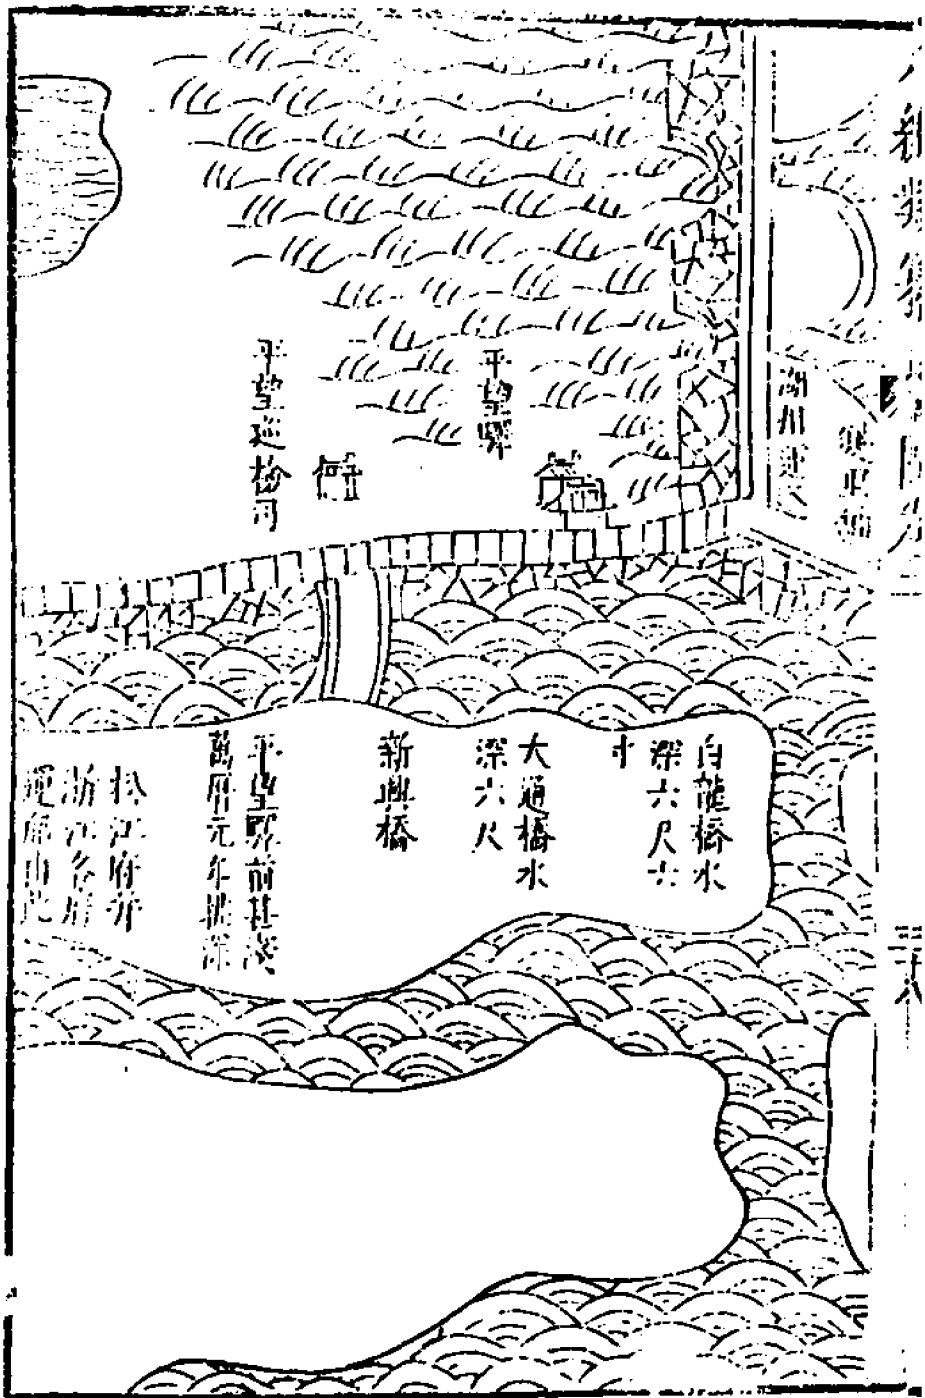 平望驛
平望巡檢司
白龍橋水
深六尺六
寸
大通橋水
深六尺
新興橋
平望驛前甚淺
萬曆元年挑深
松江府并
浙江各府
運船由此
三十八